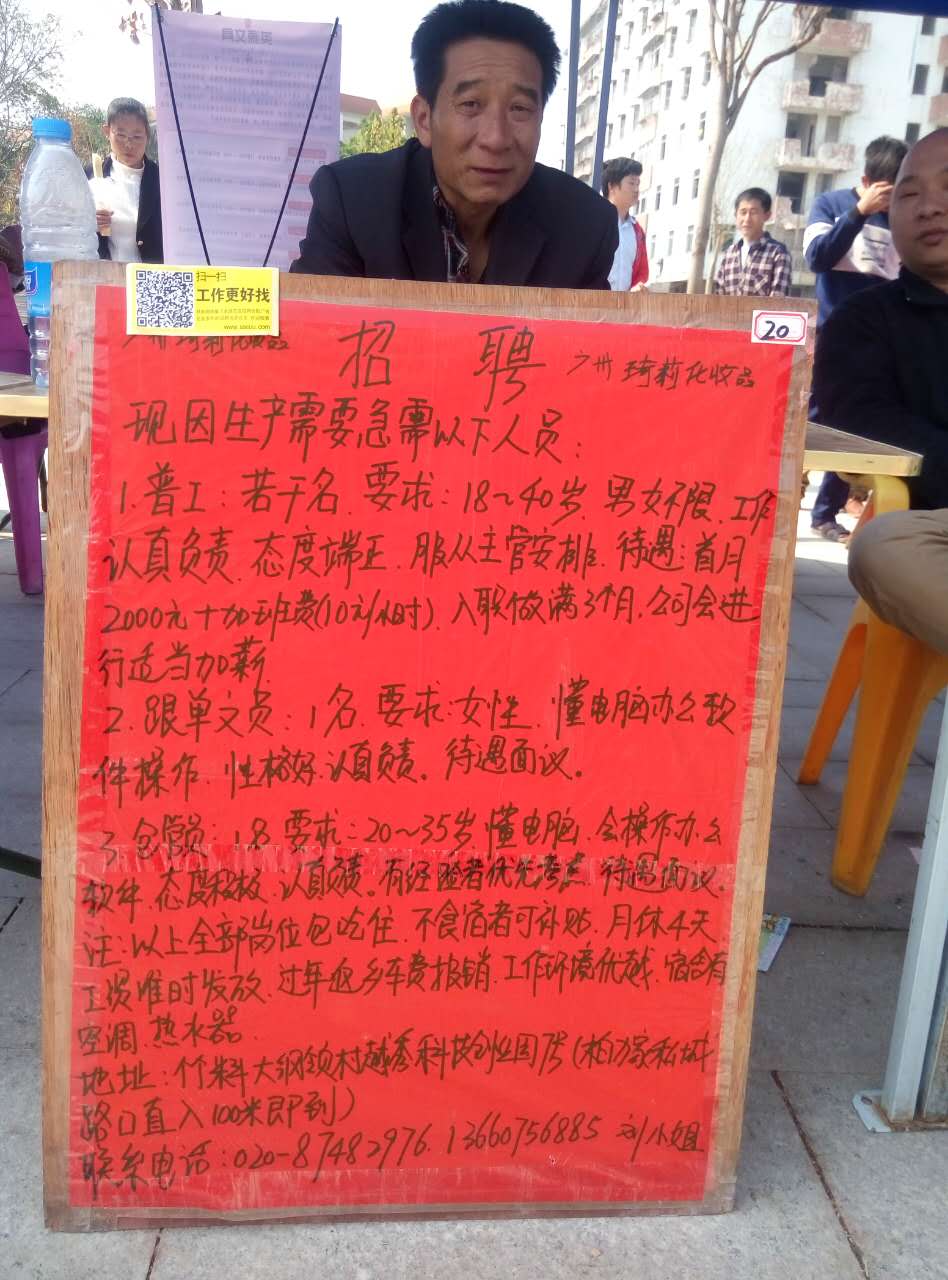 扫一扫
工作更好找
20
招聘
广州琦莉化妆品
广州琦莉化妆品
现因生产需要急需以下人员：
1.普工：若干名.要求：18~40岁.男女不限.工作
认真负责.态度端正.服从主管安排.待遇：首月
2000元+加班费(10元/小时).入职做满3个月.公司会进
行适当加薪
2.跟单文员：1名.要求：女性.懂电脑办公软
件操作.性格好.认真负责。待遇面议。
3.仓管员：1名.要求：20~35岁懂电脑.会操作办公
软件.态度积极.认真负责。有经验者优先考虑.待遇面议.
注：以上全部岗位包吃住.不食宿者可补贴.月休4天
工资准时发放.过年返乡车费报销.工作环境优越.宿舍有
空调.热水器.
地址：竹料大纲领村越秀科技创业园7号(柏力家私城
路口直入100米即到)
联系电话：020-87482976.13660756885 刘小姐